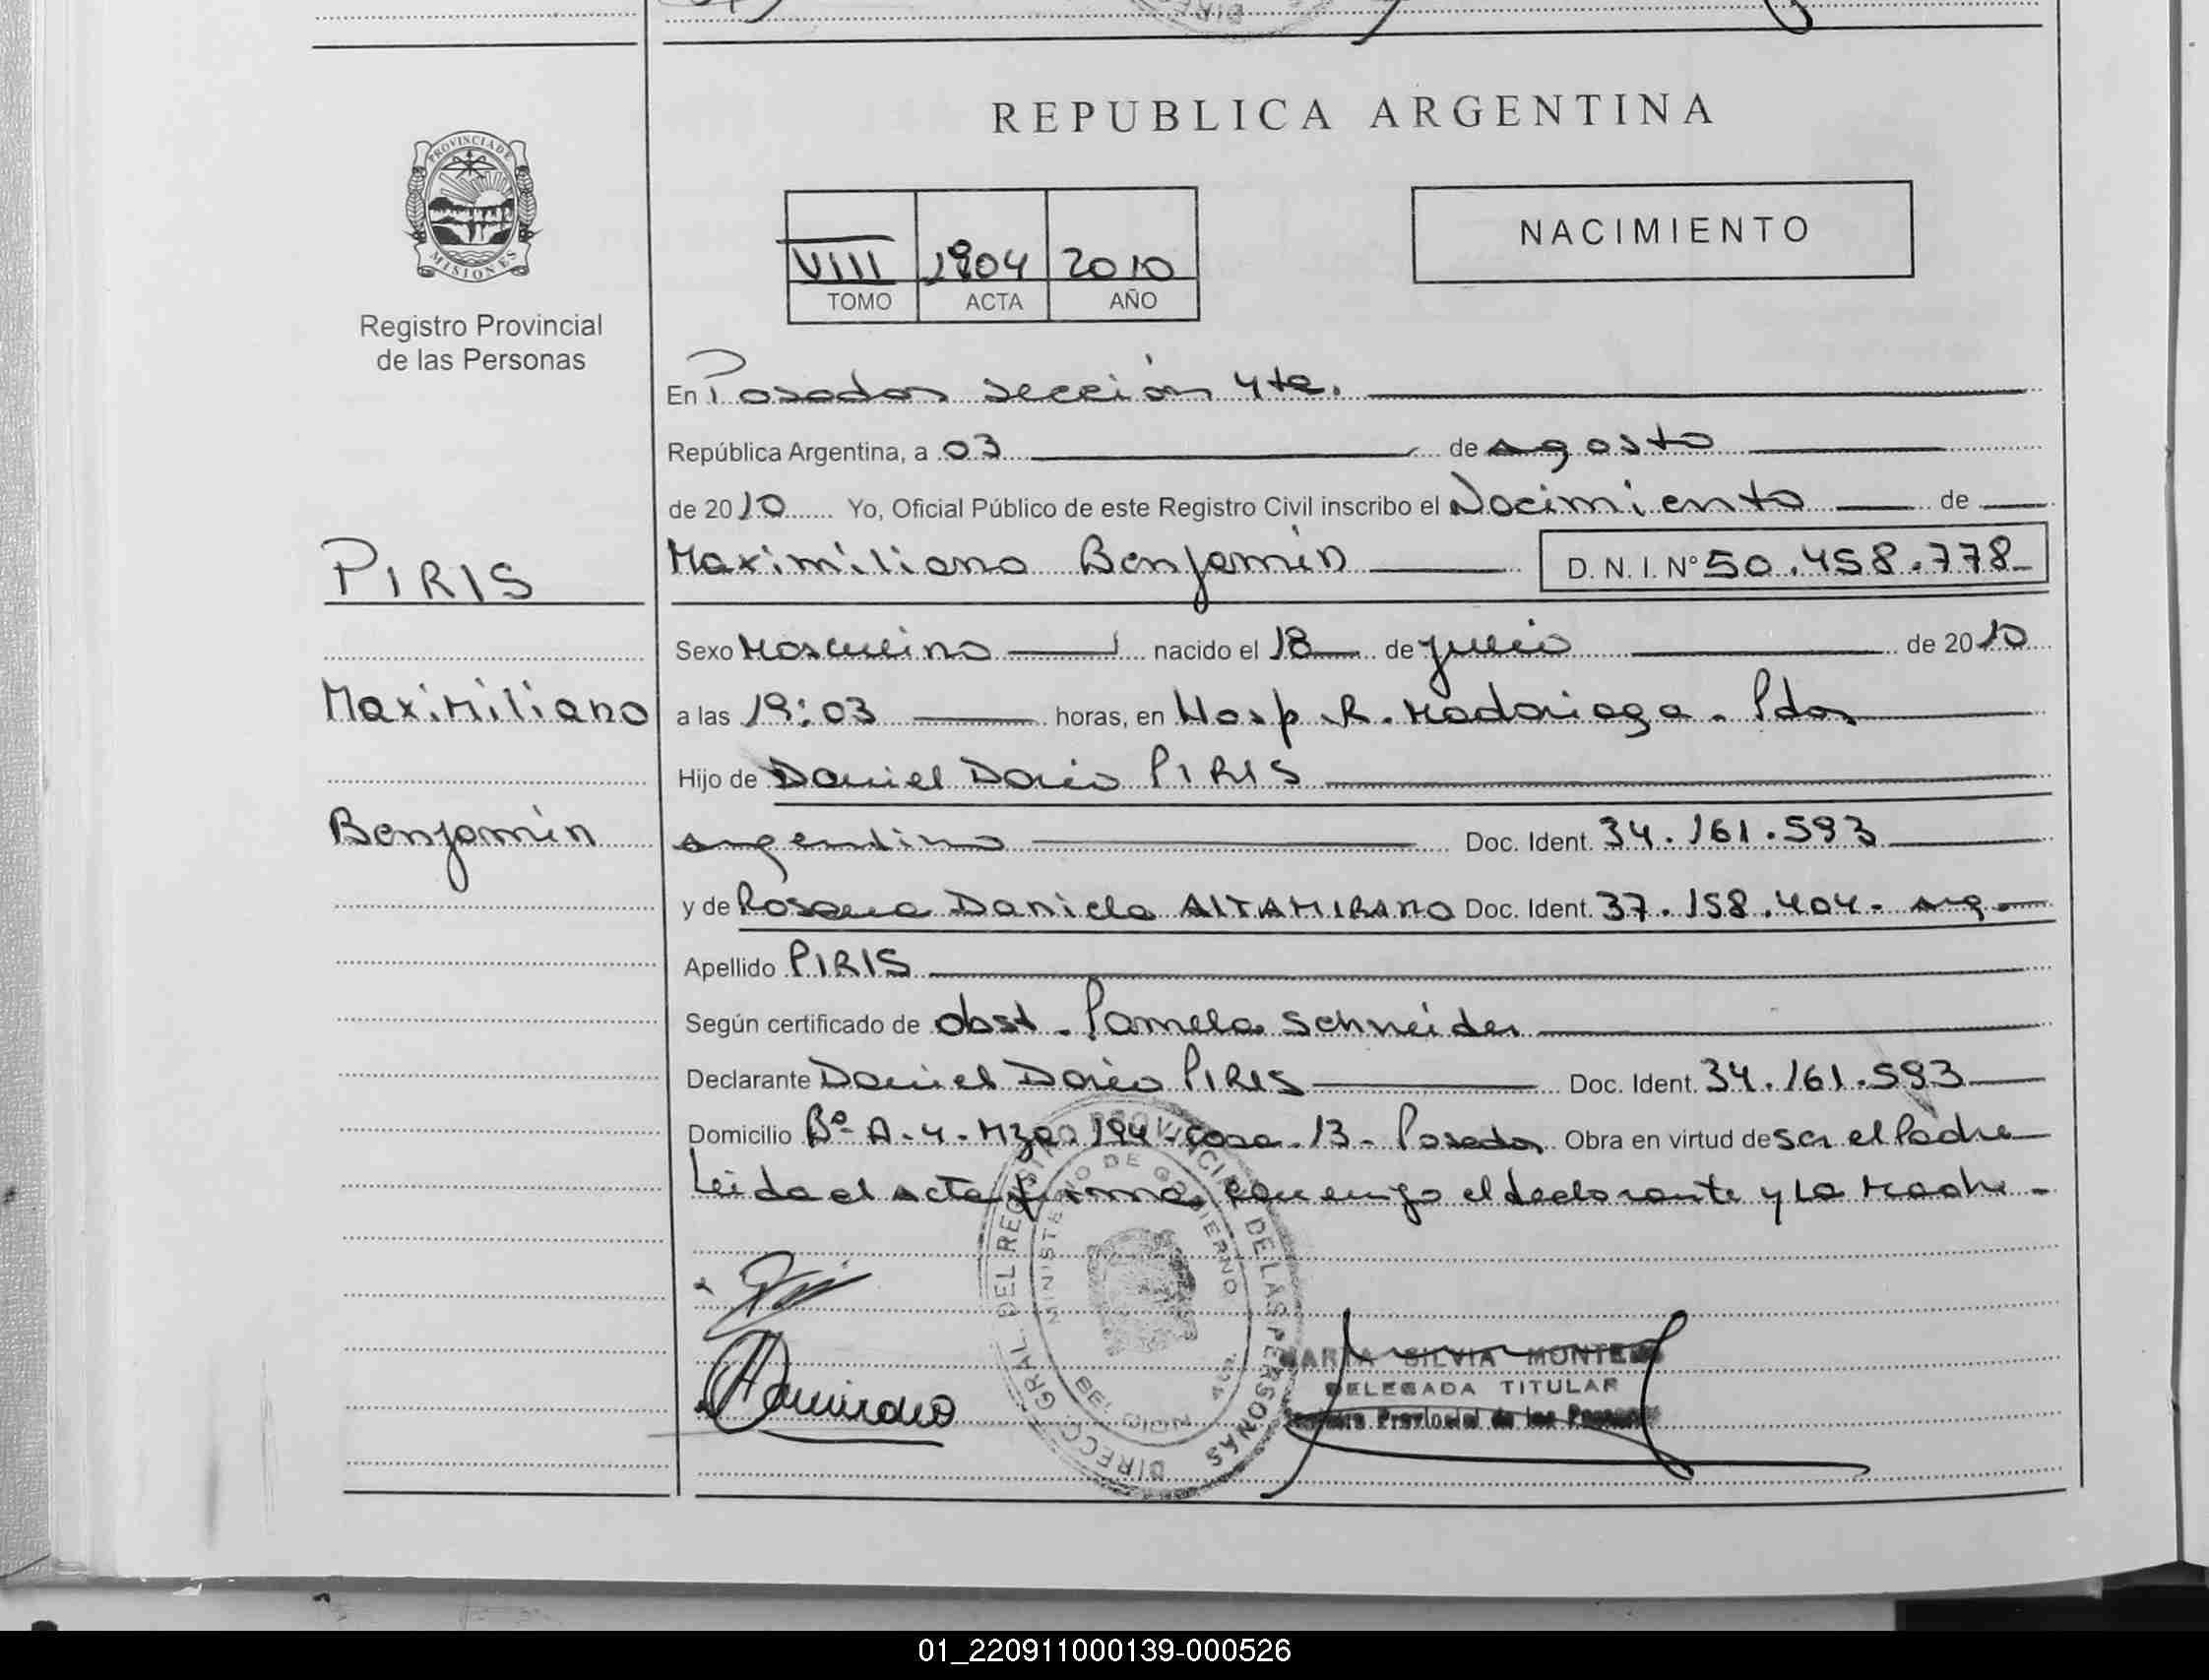 REPUBLICA ARGENTINA
PROVINCIA DE MISIONES
Registro Provincial
de las Personas
NACIMIENTO
VIII 1904 2010
TOMO ACTA AÑO
En Posadas sección 4ta.
República Argentina, a 03 de agosto
de 2010 Yo, Oficial Público de este Registro Civil inscribo el Nacimiento de
PIRIS
Maximiliano Benjamín D.N.I. Nº 50.458.778
Sexo Masculino nacido el 18 de julio de 2010
Maximiliano
a las 19:03 horas, en Hosp. R. Madariaga. Pdas
Hijo de Daniel Darío PIRIS
Benjamín
argentino Doc. Ident. 34.161.593
y de Rosana Daniela ALTAMIRANO Doc. Ident. 37.158.404- arg.
Apellido PIRIS
Según certificado de obst. Pamela Schneider
Declarante Daniel Darío PIRIS Doc. Ident. 34.161.593
Domicilio Bº A-4-Mza 194-casa-13- Posadas Obra en virtud de ser el Padre
Leída el acta firman conmigo el declarante y la Madre -
DIRECC. GRAL. DEL REGISTRO PROVINCIAL DE LAS PERSONAS
MINISTERIO DE GOBIERNO
MARTA SILVIA MONTERO
DELEGADA TITULAR
Registro Provincial de las Personas
01_220911000139-000526